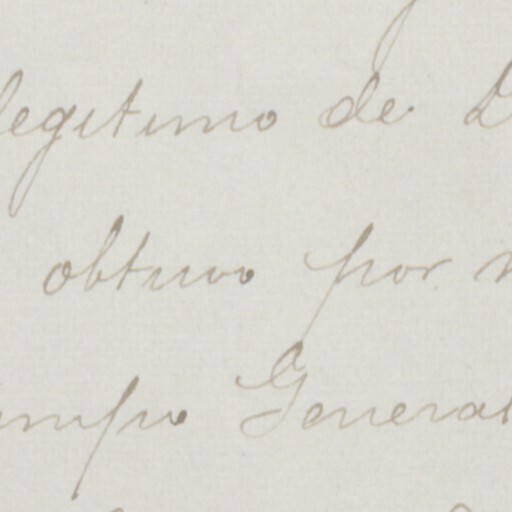 legitimo de D
obtuvo por
General